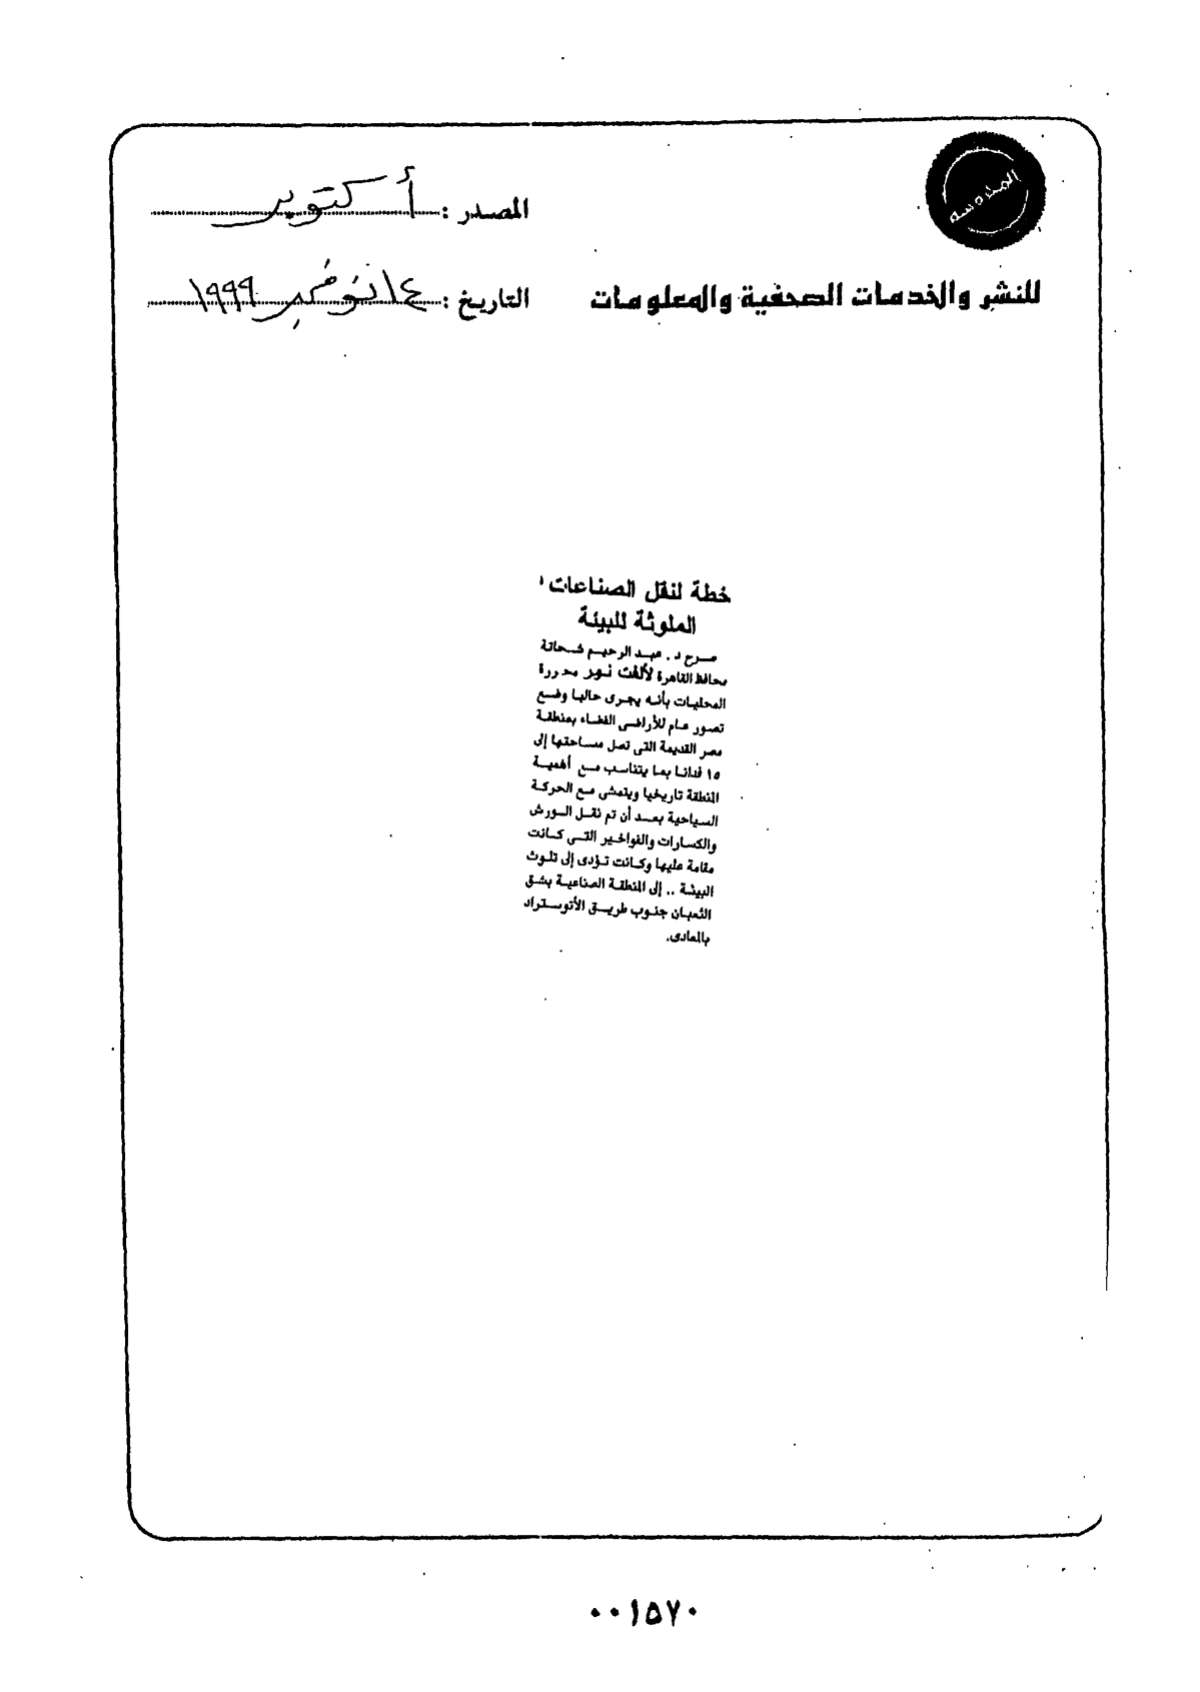 المصدر : أكتوبر
للنشر والخدمات الصحفية والمعلومات
التاريخ : ١٤ نوفمبر ١٩٩٩
خطة لنقل الصناعات
الملوثة للبيئة
صرح د. عبد الرحيم شحاتة
محافظ القاهرة لألفت نور محررة
المحليات بأنه يجرى حاليا وضع
تصور عام للأراضى الفضاء بمنطقة
مصر القديمة التى تصل مساحتها إلى
١٥ فدانا بما يتناسب مع أهمية
المنطقة تاريخيا ويتمشى مع الحركة
السياحية بعد أن تم نقل الورش
والكسارات والفواخير التى كانت
مقامة عليها وكانت تؤدى إلى تلوث
البيئة .. إلى المنطقة الصناعية بشق
الثعبان جنوب طريق الأتوستراد
بالمعادى.
٠٠١٥٧٠